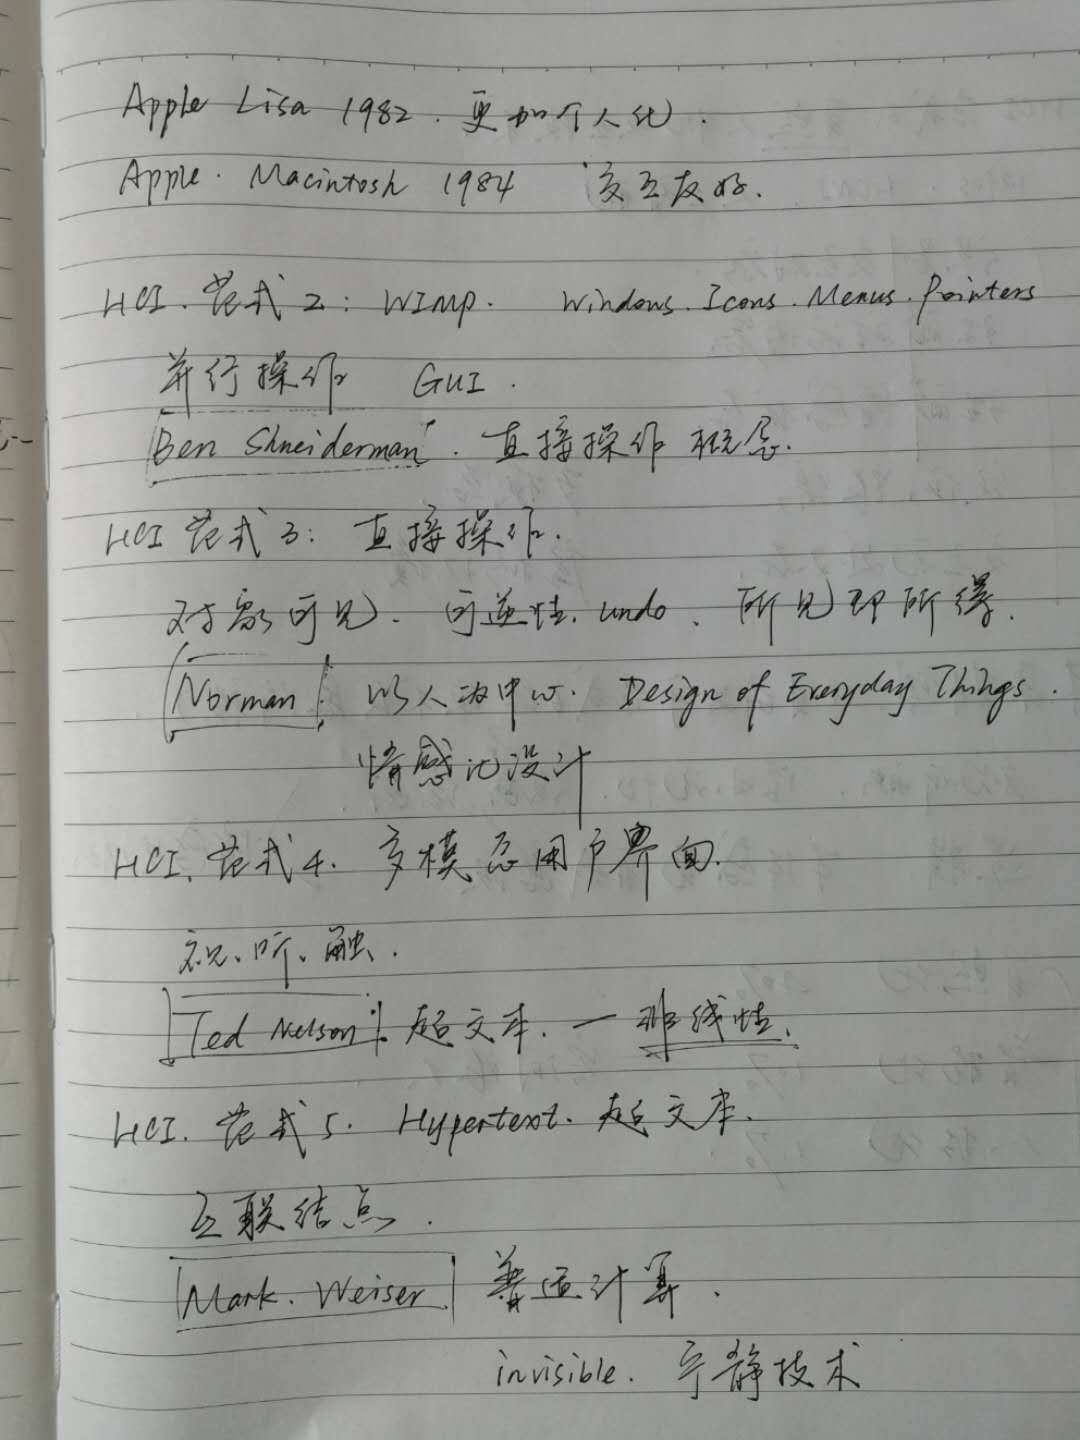 Apple Lisa 1982. 更加个人化.
Apple. Macintosh 1984 交互友好.
HCI. 范式2: WIMP. Windows. Icons. Menus. Pointers
并行操作 GUI.
Ben Shneiderman. 直接操作概念.
HCI 范式3: 直接操作.
对象可见、可逆性. undo、所见即所得.
Norman 以人为中心. Design of Everyday Things.
情感化设计
HCI. 范式4. 多模态用户界面.
视、听、触.
Ted Nelson 超文本. — 非线性.
HCI. 范式5. Hypertext. 超文本.
互联结点.
Mark. Weiser 普适计算.
invisible. 宁静技术